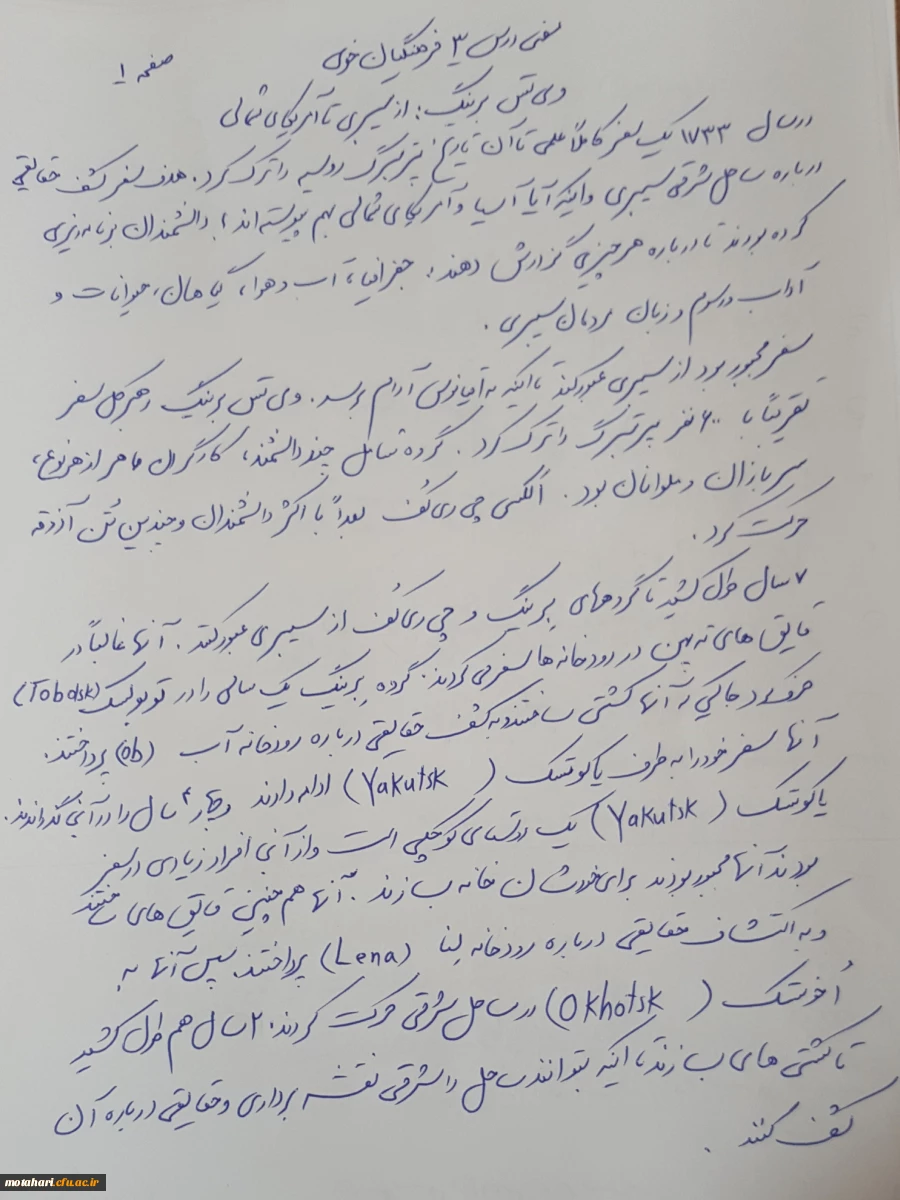 معنی درس ۳ فرهنگیان خوی
صفحه ۱
وی تس برینگ: از سیبری تا آمریکای شمالی
در سال ۱۷۳۳ یک سفر کاملاً علمی تا آن تاریخ پترزبرگ روسیه را ترک کرد. هدف سفر کشف حقایقی
درباره ساحل شرقی سیبری و اینکه آیا آسیا و آمریکای شمالی بهم پیوسته اند؟ دانشمندان برنامه ریزی
کرده بودند تا درباره هر چیزی گزارش دهند: جغرافیا، آب و هوا، گیاهان، حیوانات و
آداب و رسوم و زبان مردمان سیبری.
سفر مجبور بود از سیبری عبور کند تا اینکه به اقیانوس آرام برسد. وی تس برینگ رهبر کل سفر
تقریباً با ۶۰۰ نفر پترزبرگ را ترک کرد. گروه شامل چند دانشمند، کارگران ماهر از هر نوع،
سربازان و ملوانان بود. الکسی چی ری کف بعداً با اکثر دانشمندان و چندین تُن آذوقه
حرکت کرد.
۷ سال طول کشید تا گروههای برینگ و چی ری کف از سیبری عبور کنند. آنها غالباً در
قایق های ته پهن در رودخانه ها سفر می کردند. گروه برینگ یک سالی را در توبولسک (Tobolsk)
صرف کرد جائیکه آنها کشتی ساختند و به کشف حقایقی درباره رودخانه آب (Ob) پرداختند.
آنها سفر خود را به طرف یاکوتسک (Yakutsk) ادامه دادند و چهار ۴ سال را در آنجا گذراندند.
یاکوتسک (Yakutsk) یک روستای کوچکی است و از آنجا افراد زیادی در سفر
بودند آنها مجبور بودند برای خودشان خانه بسازند. آنها هم چنین قایق های ساختند
و به اکتشاف حقایقی درباره رودخانه لنا (Lena) پرداختند. سپس آنها به
اُخوتسک (Okhotsk) در ساحل شرقی حرکت کردند. ۲ سال هم طول کشید
تا کشتی های بسازند تا اینکه بتوانند ساحل را شرقی نقشه برداری و حقایقی درباره آن
کشف کنند.
motahari.cfu.ac.ir